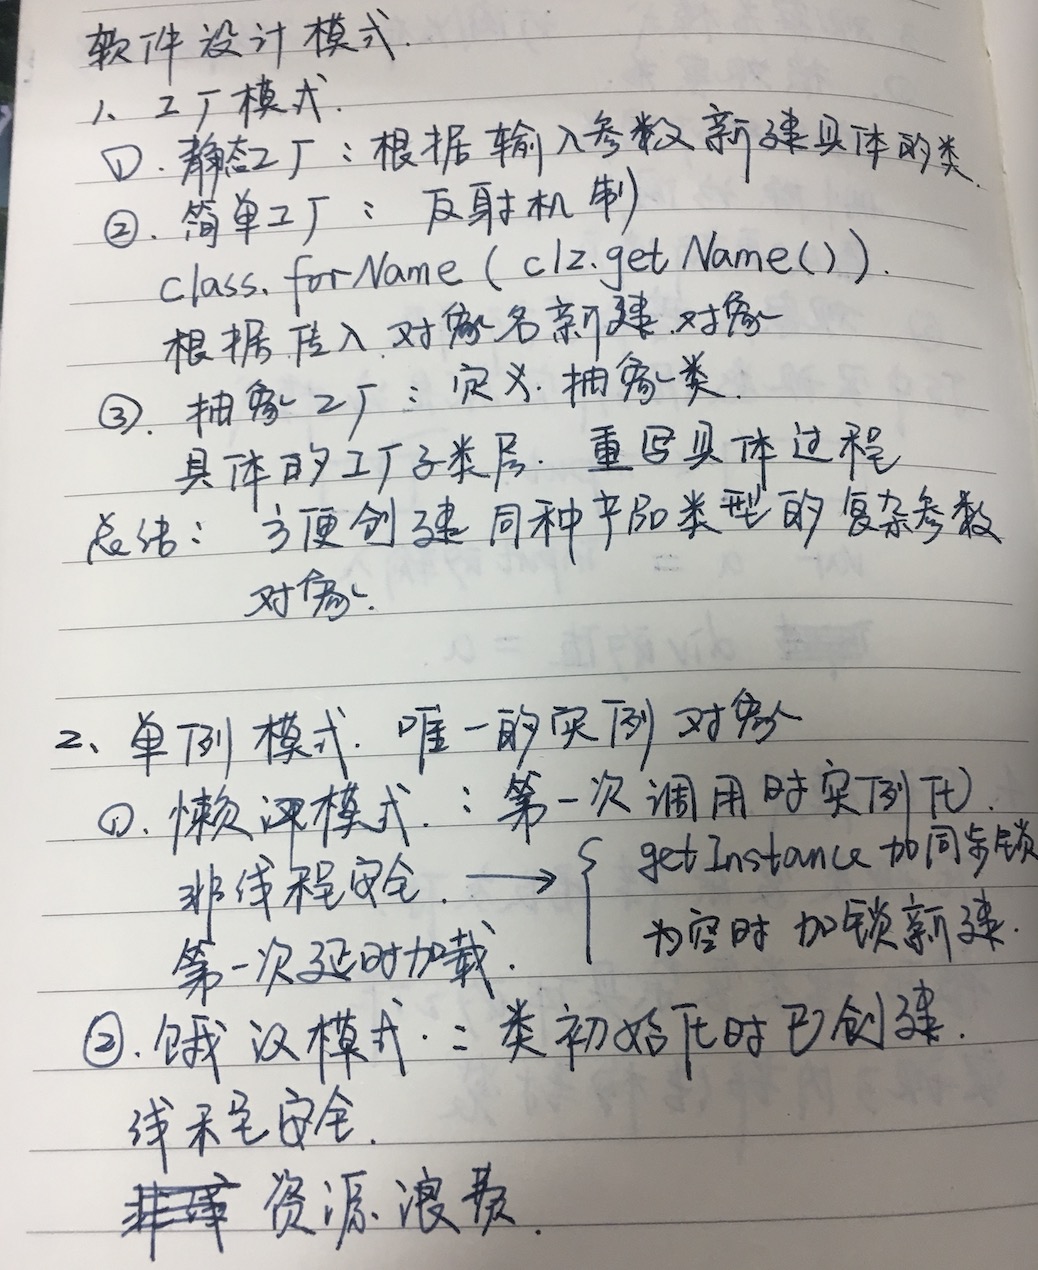 软件设计模式.
1、工厂模式.
①.静态工厂：根据输入参数新建具体的类.
②.简单工厂：反射机制
class.forName(clz.getName()).
根据传入对象名新建对象
③.抽象工厂：定义抽象类.
具体的工厂子类后.重写具体过程
总结：方便创建同种产品类型的复杂参数
对象.
2、单例模式.唯一的实例对象
①.懒汉模式.：第一次调用时实例化.
非线程安全. → { getInstance加同步锁
第一次延时加载. 为空时加锁新建.
②.饿汉模式.：类初始化时已创建.
线程安全.
资源浪费.